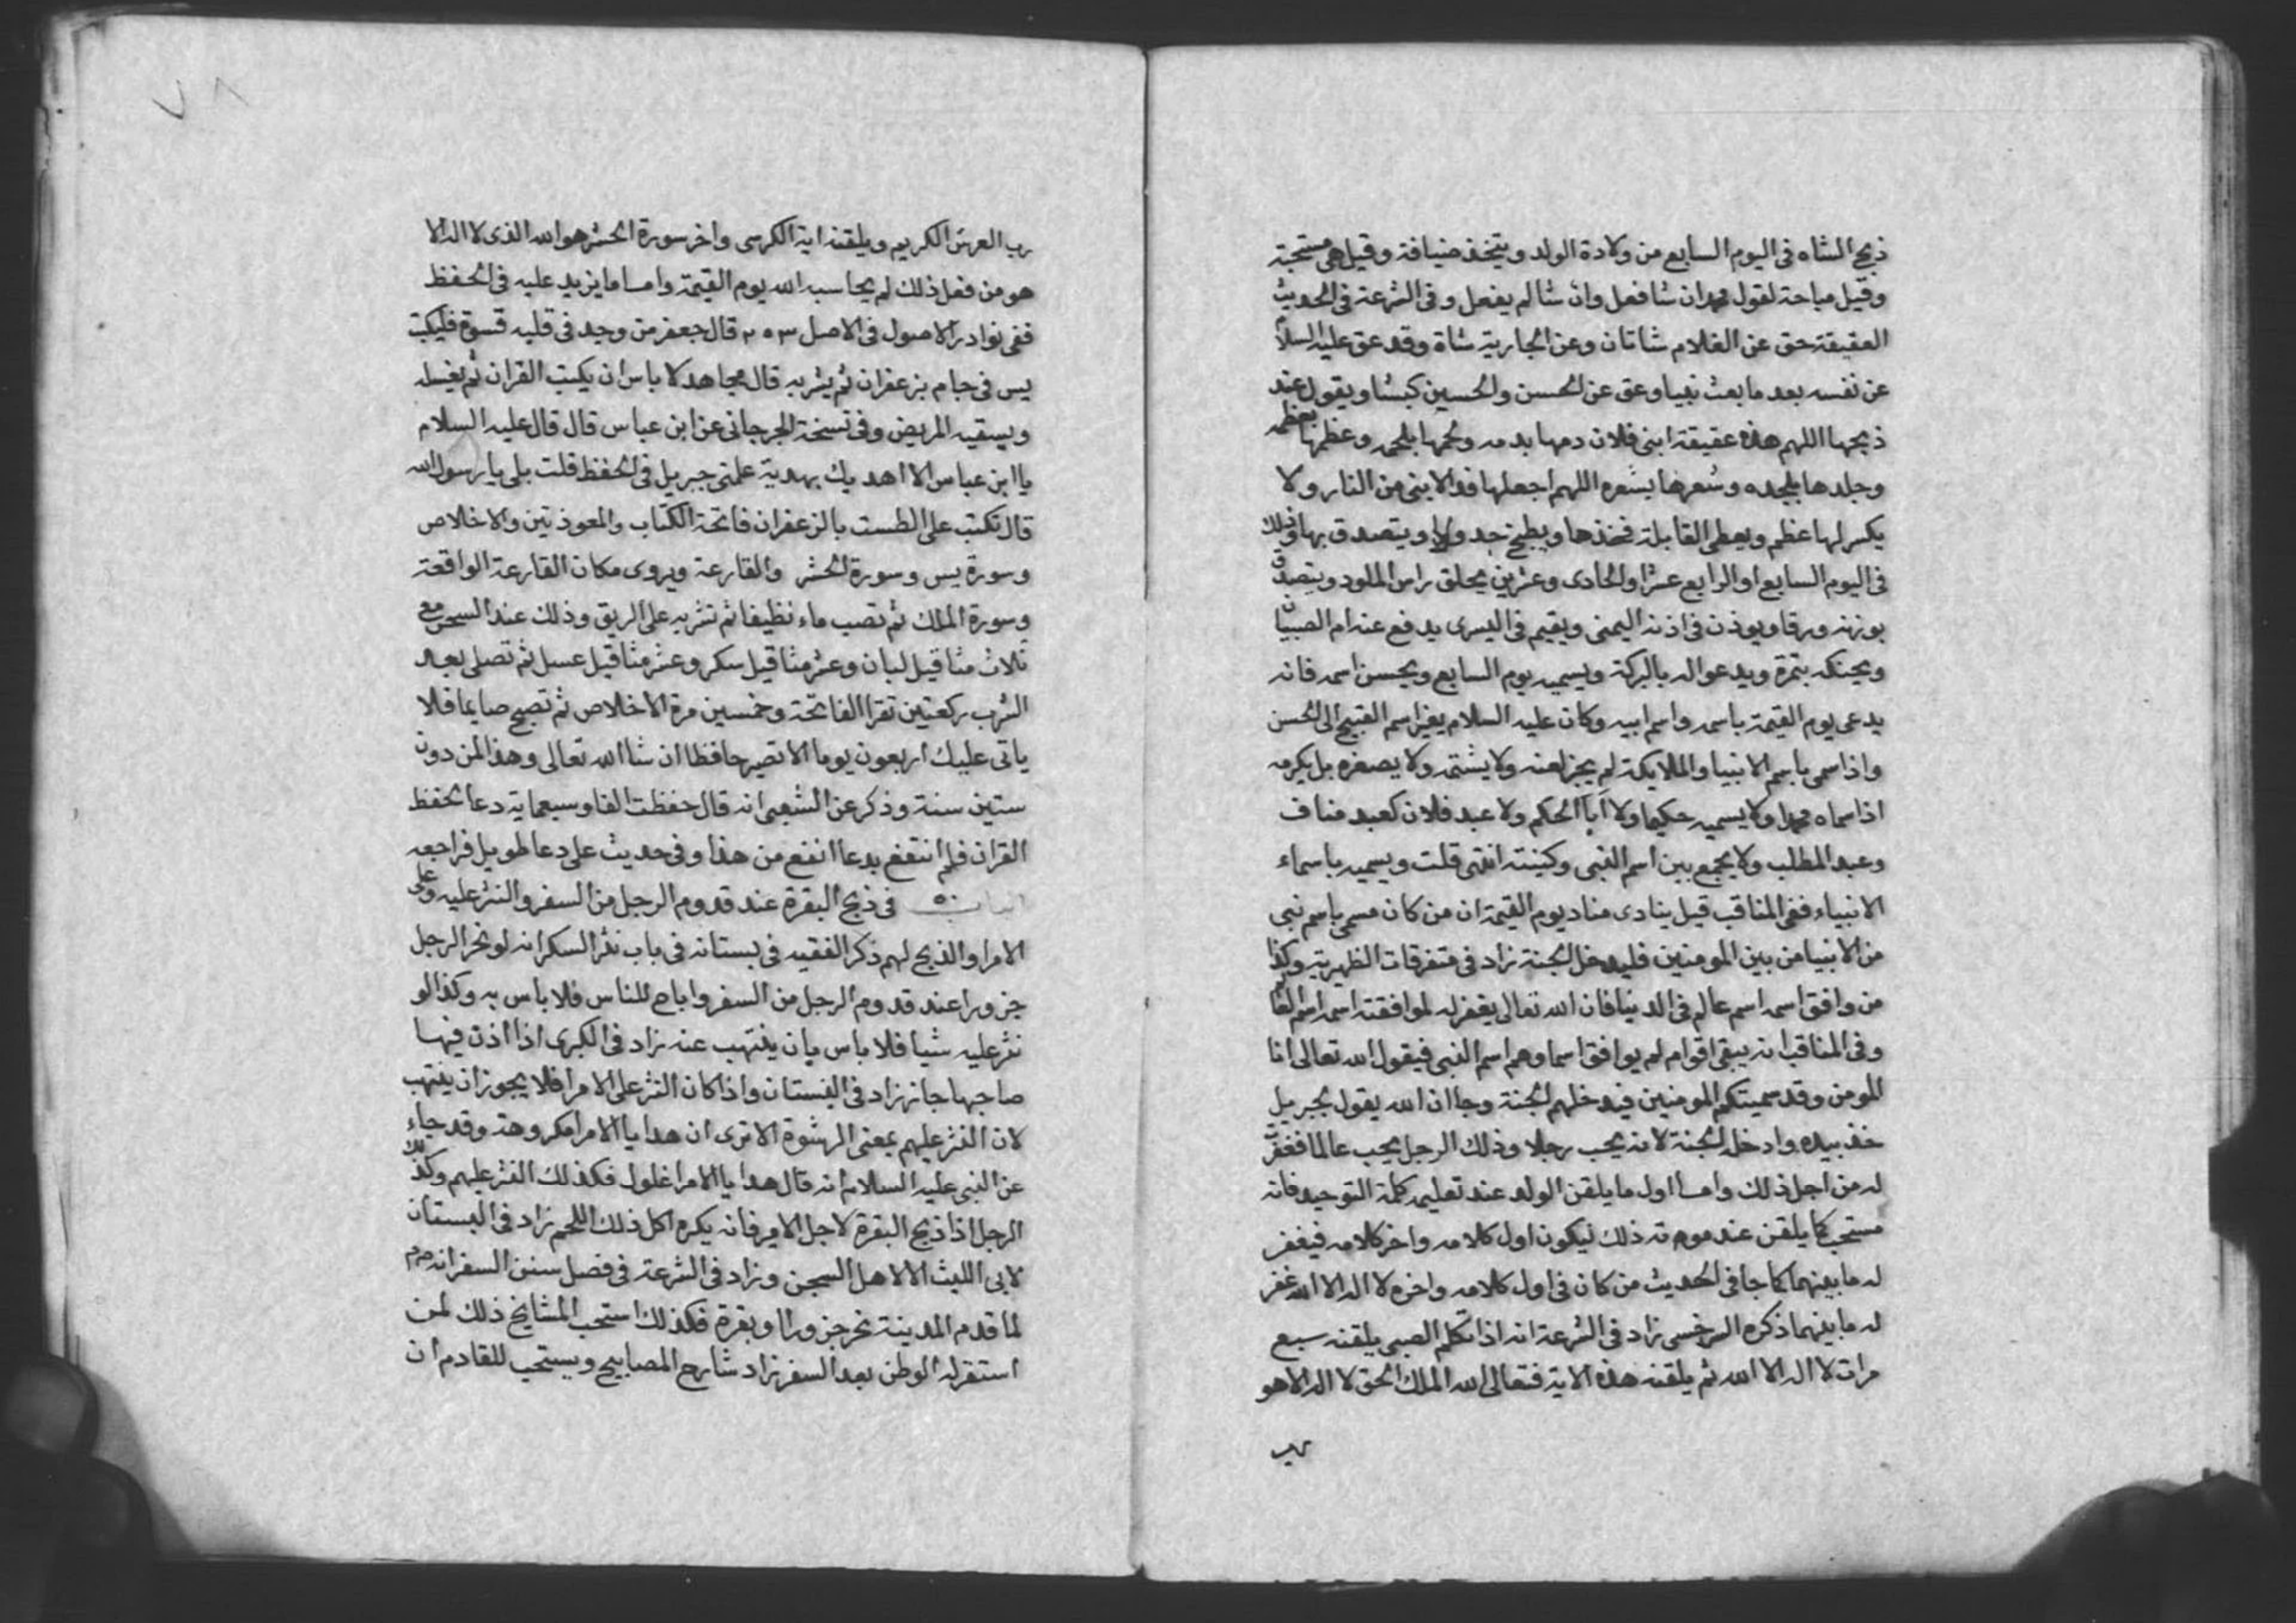 ذبح الشاه فى اليوم السابع من ولادة الولد ويتخذ ضيافة وقيل هى مستحبة
وقيل مباحة لقول محمد ان شا فعل وان شا لم يفعل وفى الشرعة فى الحديث
العقيقة حق عن الغلام شاتان وعن الجارية شاة وقد عق عليه السلام
عن نفسه بعد ما بعث نبيا وعق عن الحسن والحسين كبشا ويقول عند
ذبحها اللهم هذه عقيقة ابنى فلان دمها بدمه ولحمها بلحمه وعظمها بعظمه
وجلدها بجلده وشعرها بشعره اللهم اجعلها فدا لابنى من النار ولا
يكسر لها عظم ويعطى القابلة فخذها ويطبخ جدولا ويتصدق بها وذلك
فى اليوم السابع او الرابع عشر او الحادى وعشرين يحلق راس الملود ويتصدق
بوزنه ورقا ويوذن فى اذنه اليمنى ويقيم فى اليسرى يدفع عنه ام الصبيان
ويحنكه بتمرة ويدعو اله بالبركة ويسميه يوم السابع ويحسن اسمه فانه
يدعى يوم القيمة باسمه واسم ابيه وكان عليه السلام يغير اسم القبيح الى الحسن
واذا سمى باسم الانبيا والملايكة لم يجز لعنه ولا يشتمه ولا يصغره بل يكرمه
اذا سماه محمدا ولا يسميه حكيما ولا ابا الحكم ولا عبد فلان كعبد مناف
وعبد المطلب ولا يجمع بين اسم النبى وكنيته انتهى قلت ويسميه باسماء
الانبياء ففى المناقب قيل ينادى مناد يوم القيمة ان من كان مسمى باسم نبى
من الانبيا من بين المومنين فليدخل الجنة زاد فى متفرقات الظهرية وكذا
من وافق اسمه اسم عالم فى الدنيا فان الله تعالى يغفر له لموافقته اسمه اسم العالم
وفى المناقب انه يبقى اقوام لم يوافق اسماوهم اسم النبى فيقول الله تعالى انا
المومن وقد سميتكم المومنين فيدخلهم الجنة وجا ان الله يقول لجبريل
خذ بيده وادخله الجنة لانه يحب رجلا وذلك الرجل يحب عالما فغفرت
له من اجل ذلك واما اول ما يلقن الولد عند تعليمه كلمة التوحيد فانه
مستحب كما يلقن عند موته ذلك ليكون اول كلامه واخر كلامه فيغفر
له ما بينهما كما جا فى الحديث من كان فى اول كلامه واخره لا اله الا الله غفر
له ما بينهما ذكره السرخسى زاد فى الشرعة انه اذا تكلم الصبى يلقنه سبع
مرات لا اله الا الله ثم يلقنه هذه الاية فتعالى الله الملك الحق لا اله الا هو
رب
٧٨
رب العرش الكريم ويلقنه اية الكرسى واخر سورة الحشر هو الله الذى لا اله الا
هو من فعل ذلك لم يحاسبه الله يوم القيمة واما ما يزيد عليه فى الحفظ
ففى نوادر الاصول فى الاصل ٢٥٣ قال جعفر من وجد فى قلبه قسوة فليكتب
يس فى جام بزعفران ثم يشربه قال مجاهد لا باس ان يكتب القران ثم يغسله
ويسقيه المريض وفى نسخة الجرجانى عن ابن عباس قال قال عليه السلام
يا ابن عباس الا اهديك بهدية علمنى جبريل فى الحفظ قلت بلى يا رسول الله
قال تكتب على الطست بالزعفران فاتحة الكتاب والمعوذتين والاخلاص
وسورة يس وسورة الحشر والقارعة ويروى مكان القارعة الواقعة
وسورة الملك ثم تصب ماء نظيفا ثم تشربه على الريق وذلك عند السحر مع
ثلاث مثاقيل لبان وعشر مثاقيل سكر وعشر مثاقيل عسل ثم تصلى بعد
الشرب ركعتين تقرا الفاتحة وخمسين مرة الاخلاص ثم تصبح صايما فلا
ياتى عليك اربعون يوما الا تصير حافظا ان شا الله تعالى وهذا لمن دون
ستين سنة وذكر عن الشعبى انه قال حفظت الفا وسبعماية دعا لحفظ
القران فلم انتفع بدعا انفع من هذا وفى حديث على دعا طويل فراجعه
الباب فى ذبح البقرة عند قدوم الرجل من السفر والنثر عليه وعلى
الامرا والذبح لهم ذكر الفقيه فى بستانه فى باب نثر السكر انه لو نحر الرجل
جزورا عند قدوم الرجل من السفر واباح للناس فلا باس به وكذا لو
نثر عليه شيا فلا باس بان ينتهب عنه زاد فى الكبرى اذا اذن فيها
صاحبها جاز زاد فى البستان واذا كان النثر على الامرا فلا يجوز ان ينتهب
لان النثر عليهم بمعنى الرشوة الا ترى ان هدايا الامرا مكروهة وقد جاء
عن النبى عليه السلام انه قال هدايا الامرا غلول فكذلك النثر عليهم وكذلك
الرجل اذا ذبح البقرة لاجل الامير فانه يكره اكل ذلك اللحم زاد فى البستان
لابى الليث الا لاهل السجن وزاد فى الشرعة فى فصل سنن السفر انه
لما قدم المدينة نحر جزورا او بقرة فكذلك استحب المشايخ ذلك لمن
استقر له الوطن بعد السفر زاد شارح المصابيح ويستحب للقادم ان